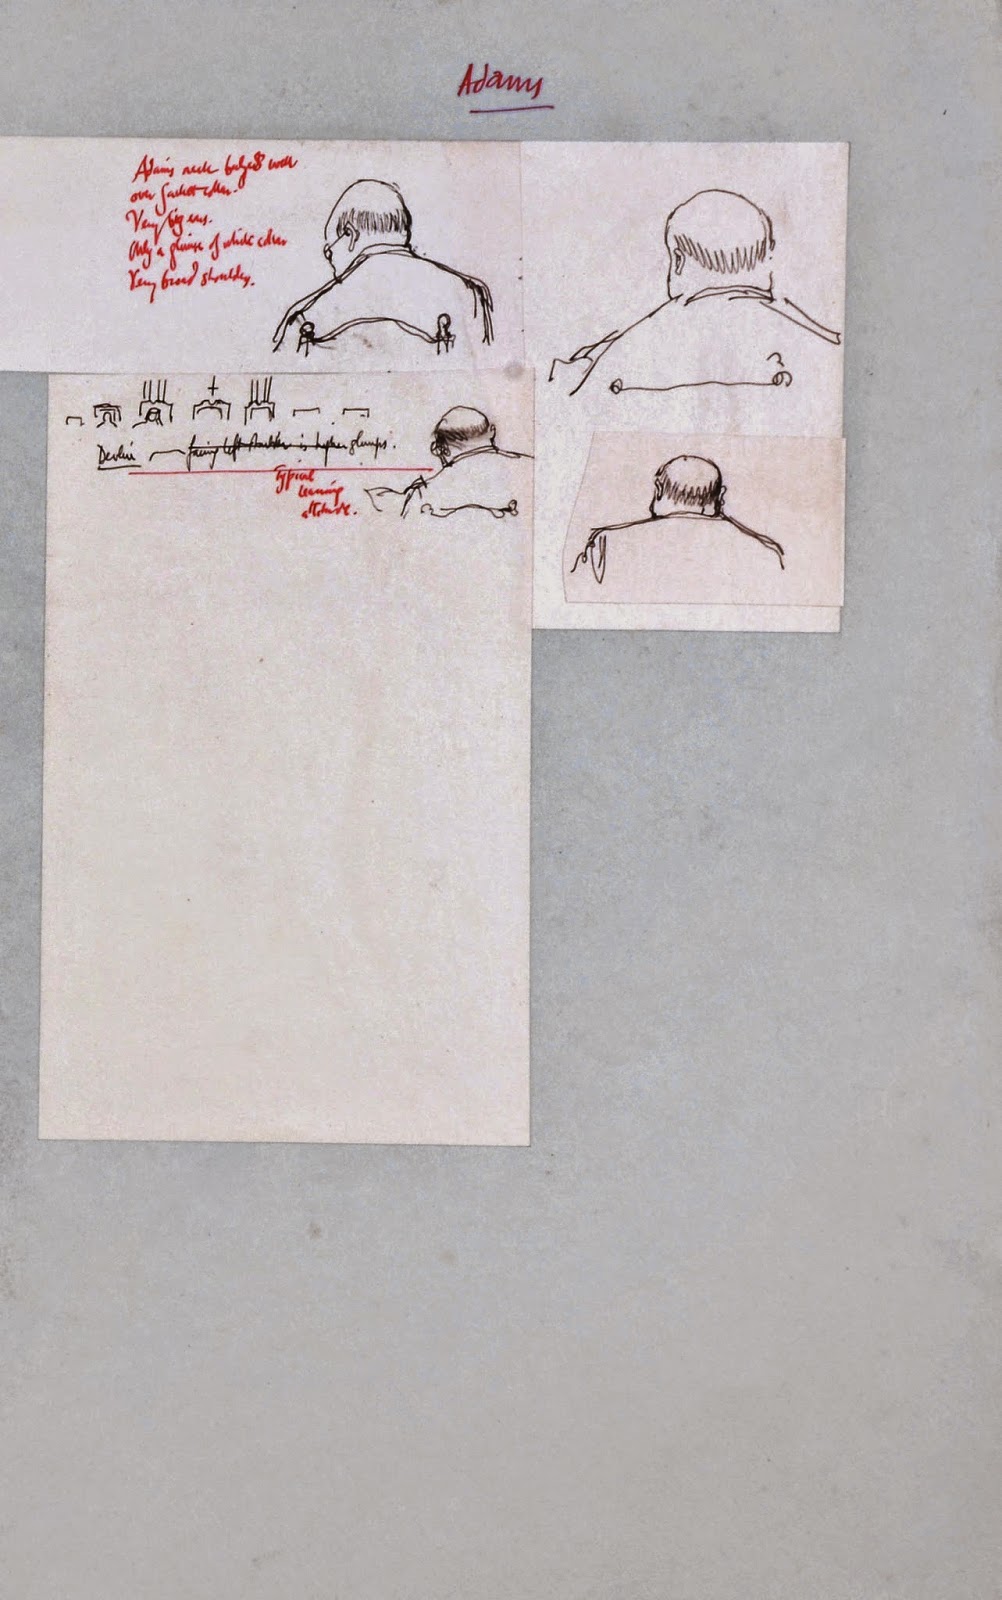 Adams
Adams neck bulges well
over jacket collar.
Very big ears.
Only a glimpse of white collar
Very broad shoulders.
Devlin — facing left shoulder is higher glumps.
Typical
leaning
attitude.